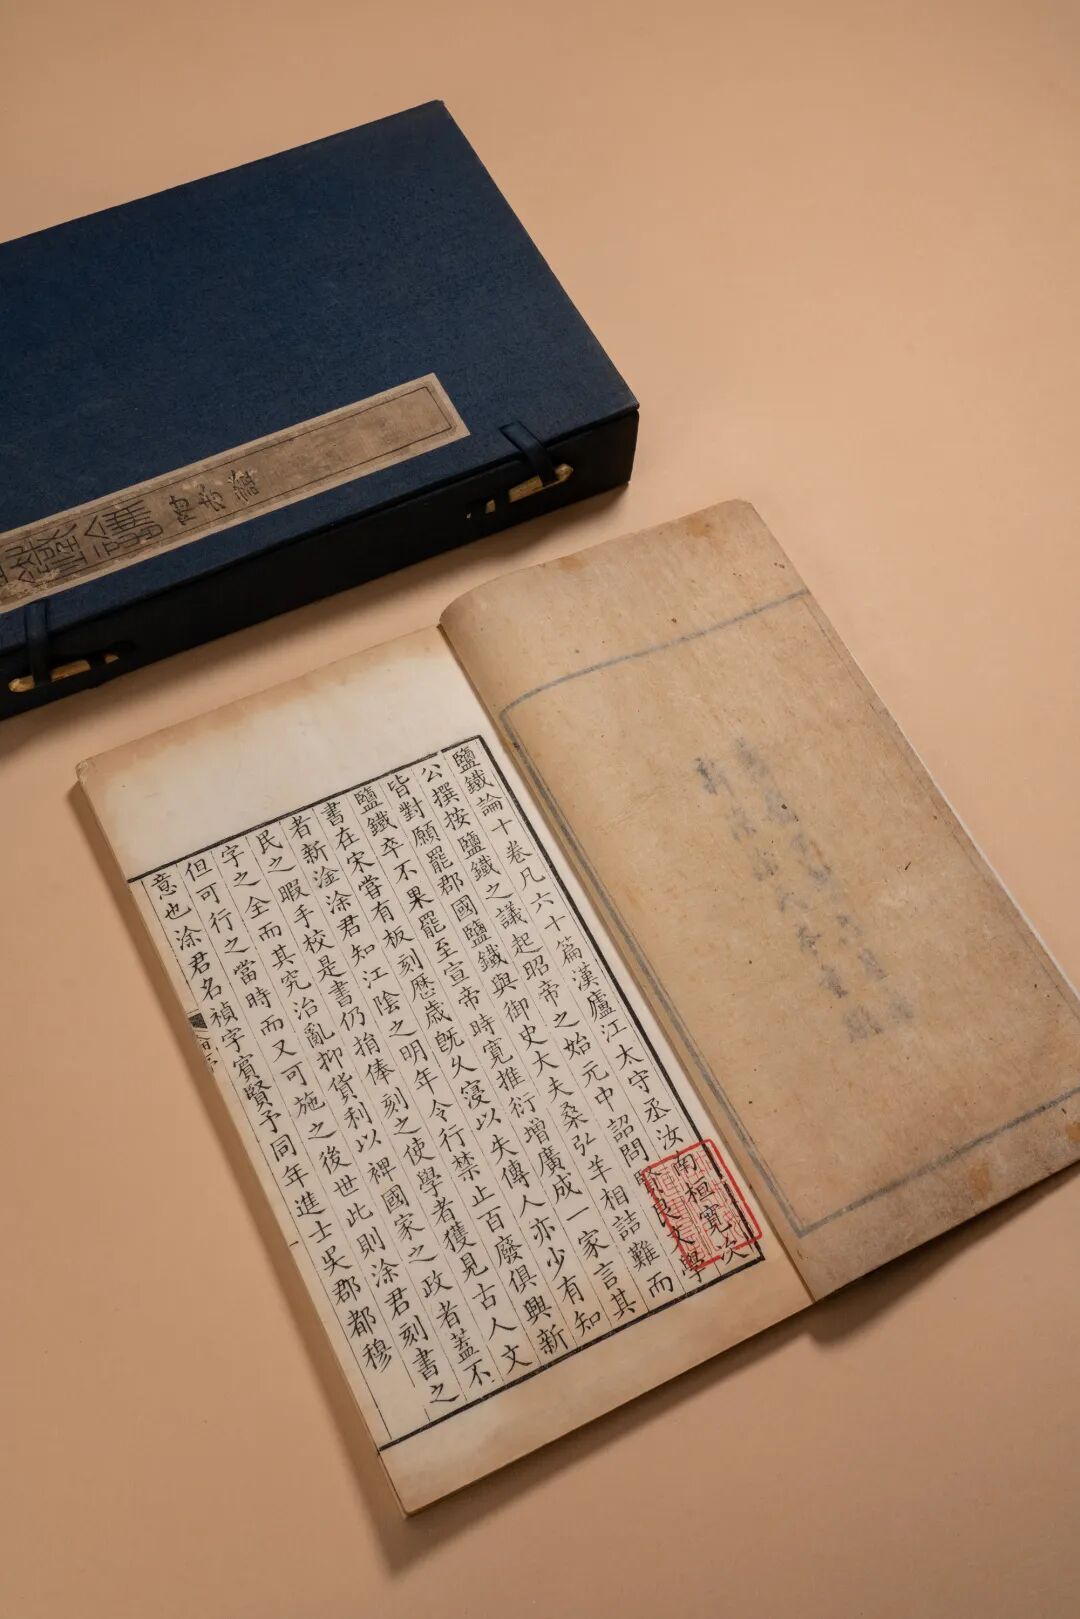 鹽鐵論十卷凡六十篇漢廬江太守丞汝南桓寬次
公撰按鹽鐵之議起昭帝之始元中詔問賢良文學
皆對願罷郡國鹽鐵與御史大夫桑弘羊相詰難而
鹽鐵卒不果罷至宣帝時寬推衍增廣成一家言其
書在宋嘗有板刻歷歲旣久寖以失傳人亦少有知
者新淦涂君知江陰之明年令行禁止百廢俱興新
民之暇手校是書仍捐俸刻之使學者獲見古人文
字之全而其究治亂抑貨利以裨國家之政者蓋不
但可行之當時而又可施之後世此則涂君刻書之
意也涂君名禎字賓賢予同年進士吳郡都穆